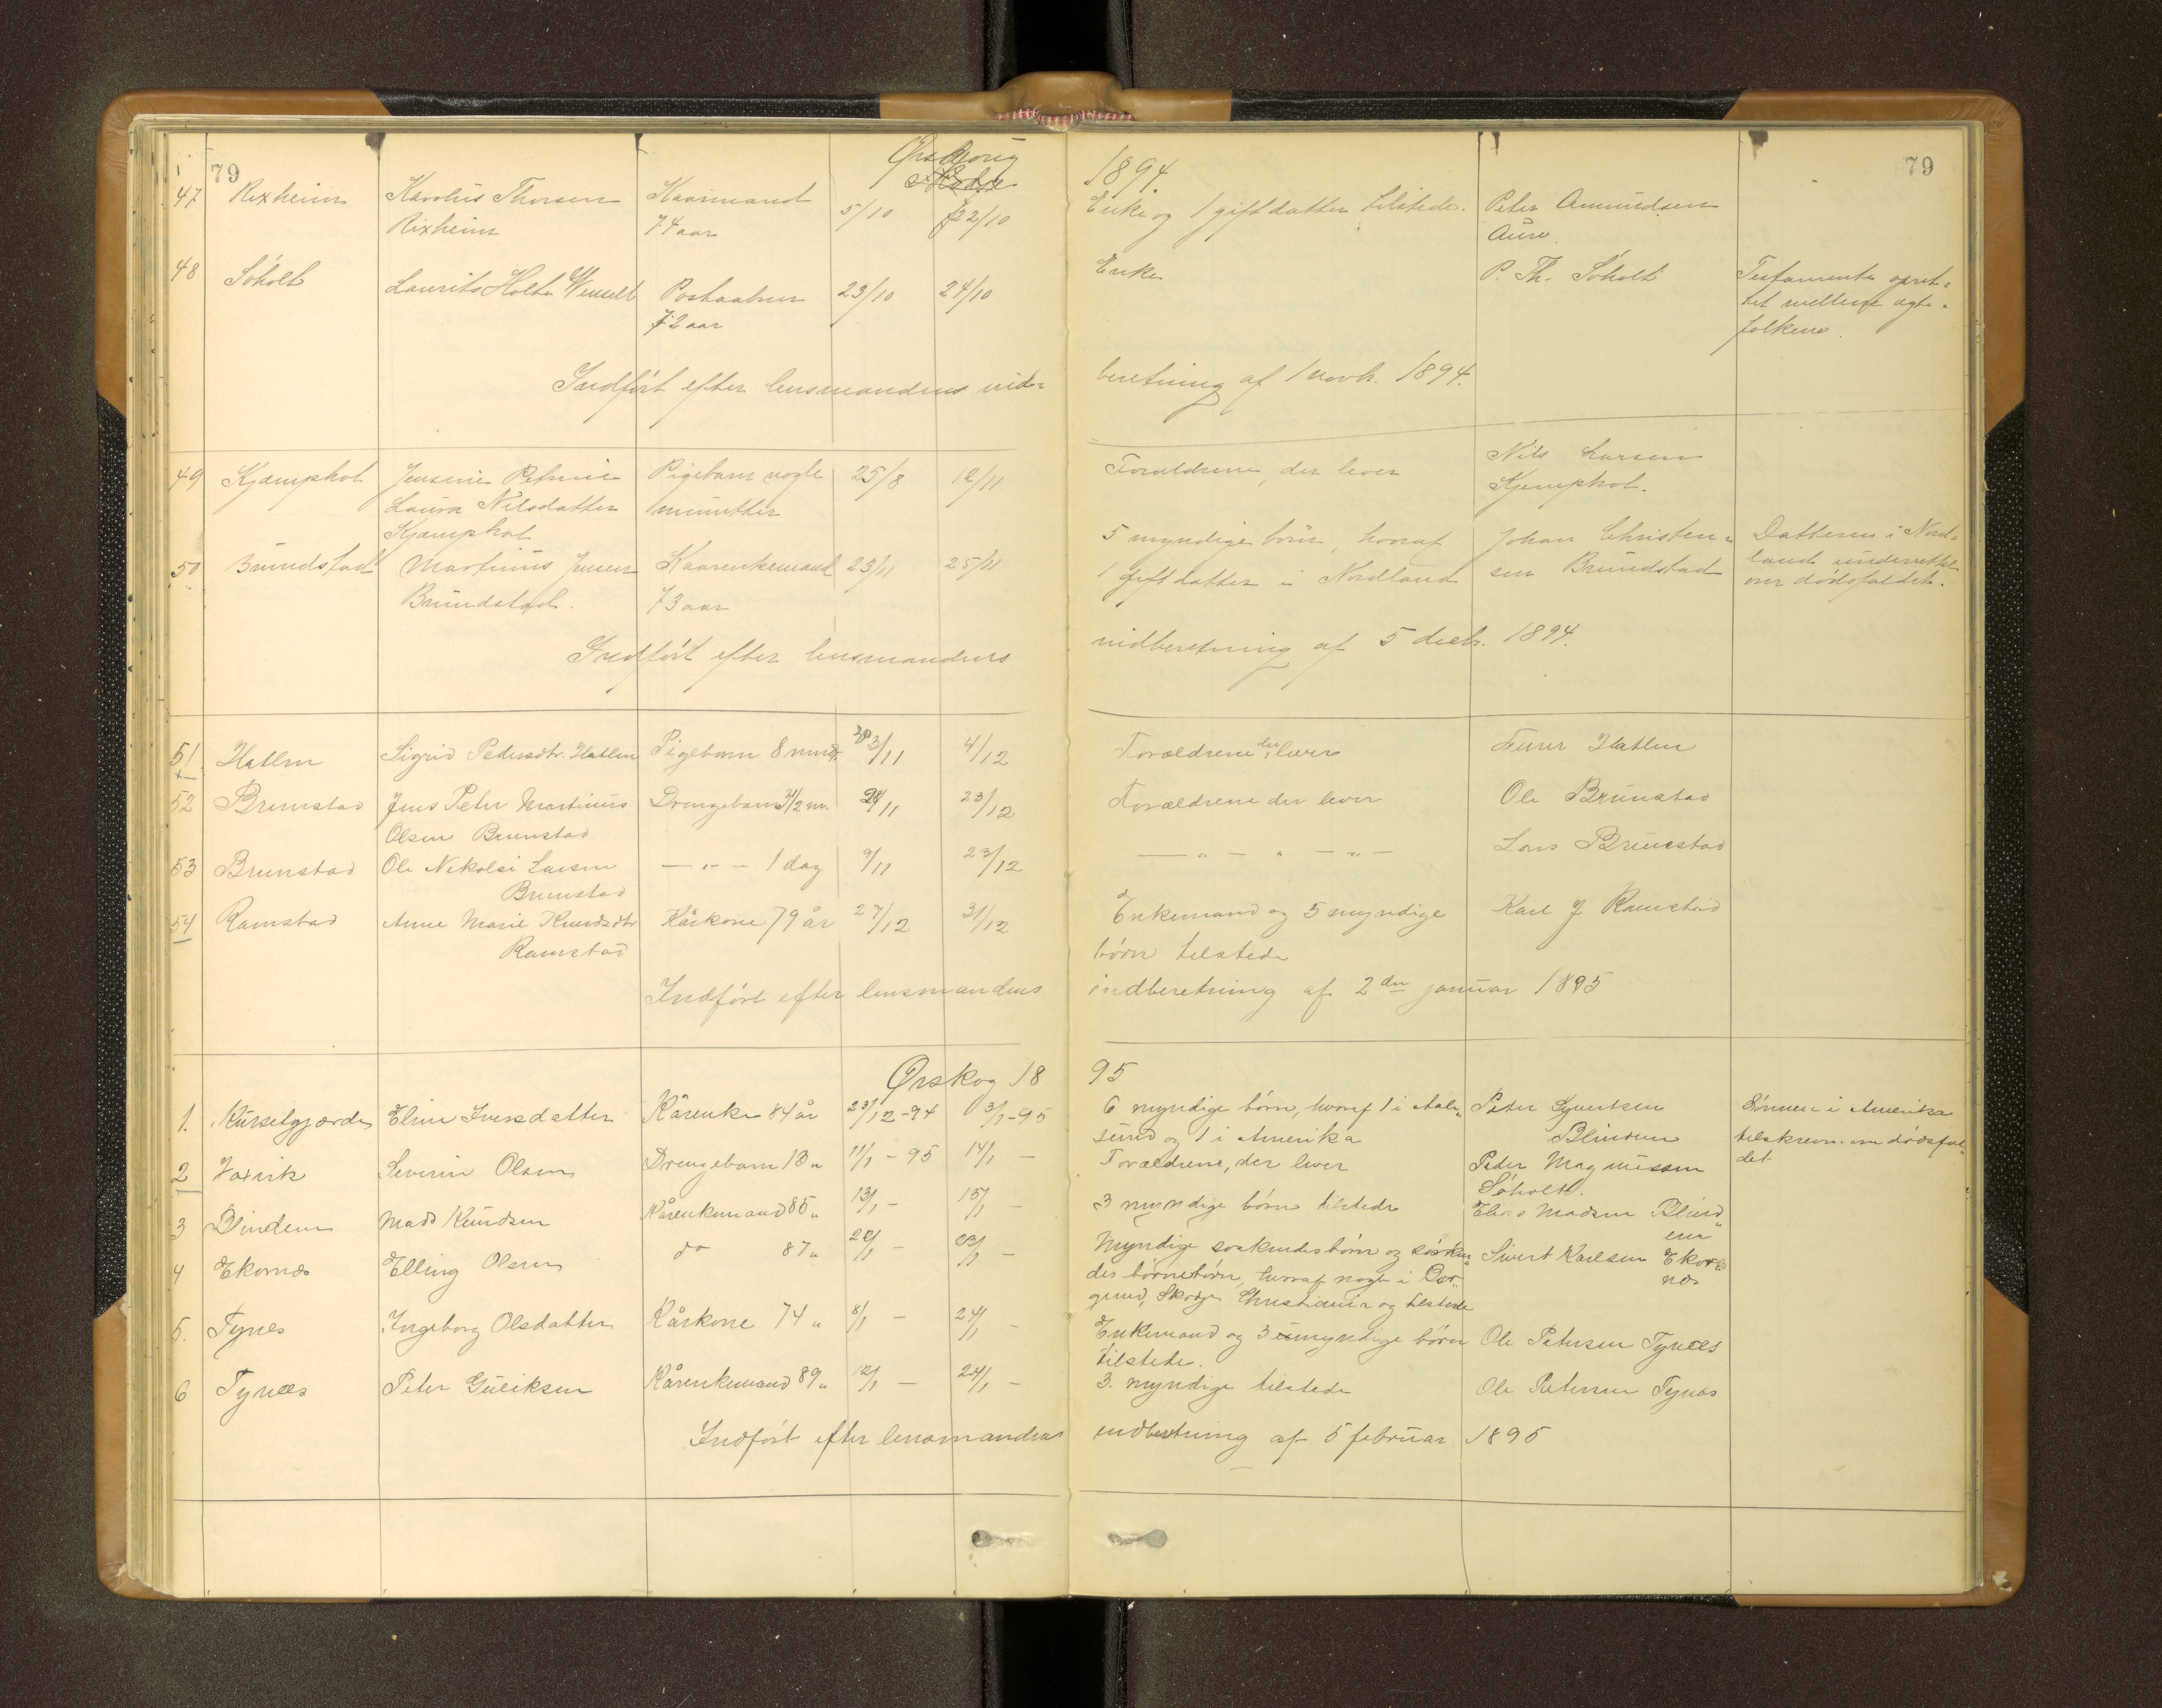 79
Ørskoug
1894.
79
47 Rixheim Karolus Thorsen Kaarmand 5/10 22/10 Enke og 1 gift datter tilstede. Peter Amundsen
Rixheim 74 aar Aure.
48 Søholt Laurits Holte Postaabner 23/10 24/10 Enke P. Th. Søholt Testamente opret-
72 aar tet mellem ægte-
folkene.
Indført efter lensmandens indberetning af 1 novb. 1894.
49 Kjæmphol Jensine Petrine Pigebarn nogle 25/8 12/11 Forældrene, der lever Nils Larsen
Laura Nilsdatter minutter Kjemphol.
Kjæmphol
50 Brundstad Martinus Jensen Kaarenkemand 23/11 25/11 5 myndige børn, hvoraf Johan Christen- Datteren i Nord-
Brundstad. 73 aar 1 gift datter i Nordland sen Brundstad land underrettet
om dødsfaldet.
Indført efter lensmandens indberetning af 5 decb. 1894.
51 Hatlen Sigrid Pedersdtr. Hatlen Pigebarn 8 mndr. 3/11 4/12 Forældrene der lever Hatlen
52 Brunstad Jens Peter Martinus Drengebarn 3 1/2 m. 23/12 Forældrene der lever Ole Brunstad
Olsen Brunstad
53 Brunstad Ole Nikolai Larsen — " — 1 dag 9/11 23/12 — " — " — " — Lars Brunstad
Brunstad
54 Ramstad Anne Marie Knudsdtr Kårkone 79 år 27/12 31/12 Enkemand og 5 myndige Karl J Ramstad
Ramstad børn tilstede
Indført efter lensmandens indberetning af 2den januar 1895
Ørskog 1895
1. Kursetgjærde Eline Iversdatter Kårenke 84 år 23/12-94 3/1-95 6 myndige børn, hvoraf 1 i Aale- Peter Syvertsen Sønnen i Amerika
sund og 1 i Amerika Blindem tilskreven om dødsfal-
det
2 Severin Olsen Drengebarn 13 " 11/1 - 95 14/1 - Forældrene, der lever Peder Magnussen
Søholt.
3 Blindem Mads Knudsen Kårenkemand 85 " 13/1 - 15/1 - 3 myndige børn tilstede Elias Madsen Blind-
em
4 Ekornes Elling Olsen do 87 " 22/1 - 23/1 - Myndige søskendebørn og søsken- Sivert Karlsen Ekor-
des børnebørn, hvoraf nogle i nes
grund, Skodje Christiania og tilstede
5. Tynes Ingeborg Olsdatter Kårkone 74 " 8/1 - 24/1 - Enkemand og 3 myndige børn Ole Petersen Tynes
tilstede.
6 Tynes Peter Guliksen Kårenkemand 89 " 12/1 - 24/1 - 3. myndige tilstede Ole Petersen Tynes
Indført efter lensmandens indberetning af 5 februar 1895